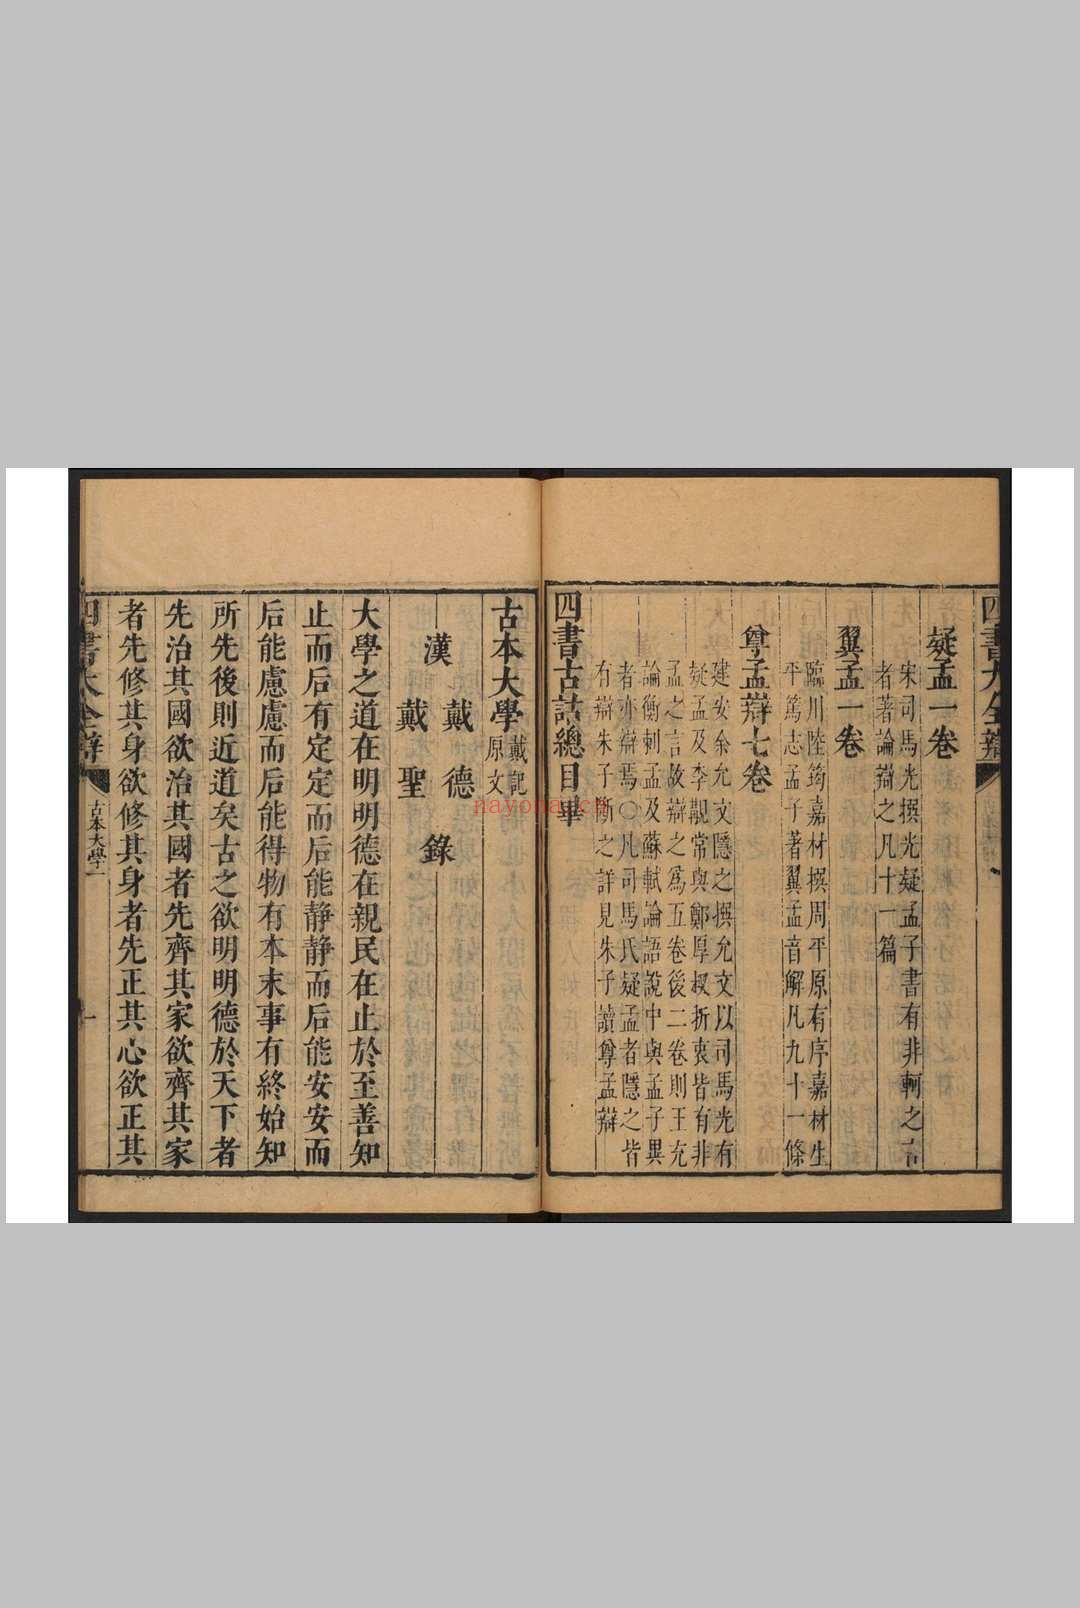 四書大全辯
疑孟一卷
宋司馬光撰光疑孟子書有非軻之言
者著論辯之凡十一篇
翼孟一卷
臨川陸筠嘉材撰周平原有序嘉材生
平篤志孟子著翼孟音解凡九十一條
尊孟辯七卷
建安余允文隱之撰允文以司馬光有
疑孟及李覯常與鄭厚叔折衷皆有非
孟之言故辯之為五卷後二卷則王充
論衡刺孟及蘇軾論語說中與孟子異
者亦辯焉〇凡司馬氏疑孟者隱之皆
有辯朱子斷之詳見朱子讀尊孟辯
四書古詁總目畢
古本大學戴記原文
漢 戴德
戴聖 錄
大學之道在明明德在親民在止於至善知
止而后有定定而后能静静而后能安安而
后能慮慮而后能得物有本末事有終始知
所先後則近道矣古之欲明明德於天下者
先治其國欲治其國者先齊其家欲齊其家
者先修其身欲修其身者先正其心欲正其
四書大全辯 古本大學 一
nayona.cn